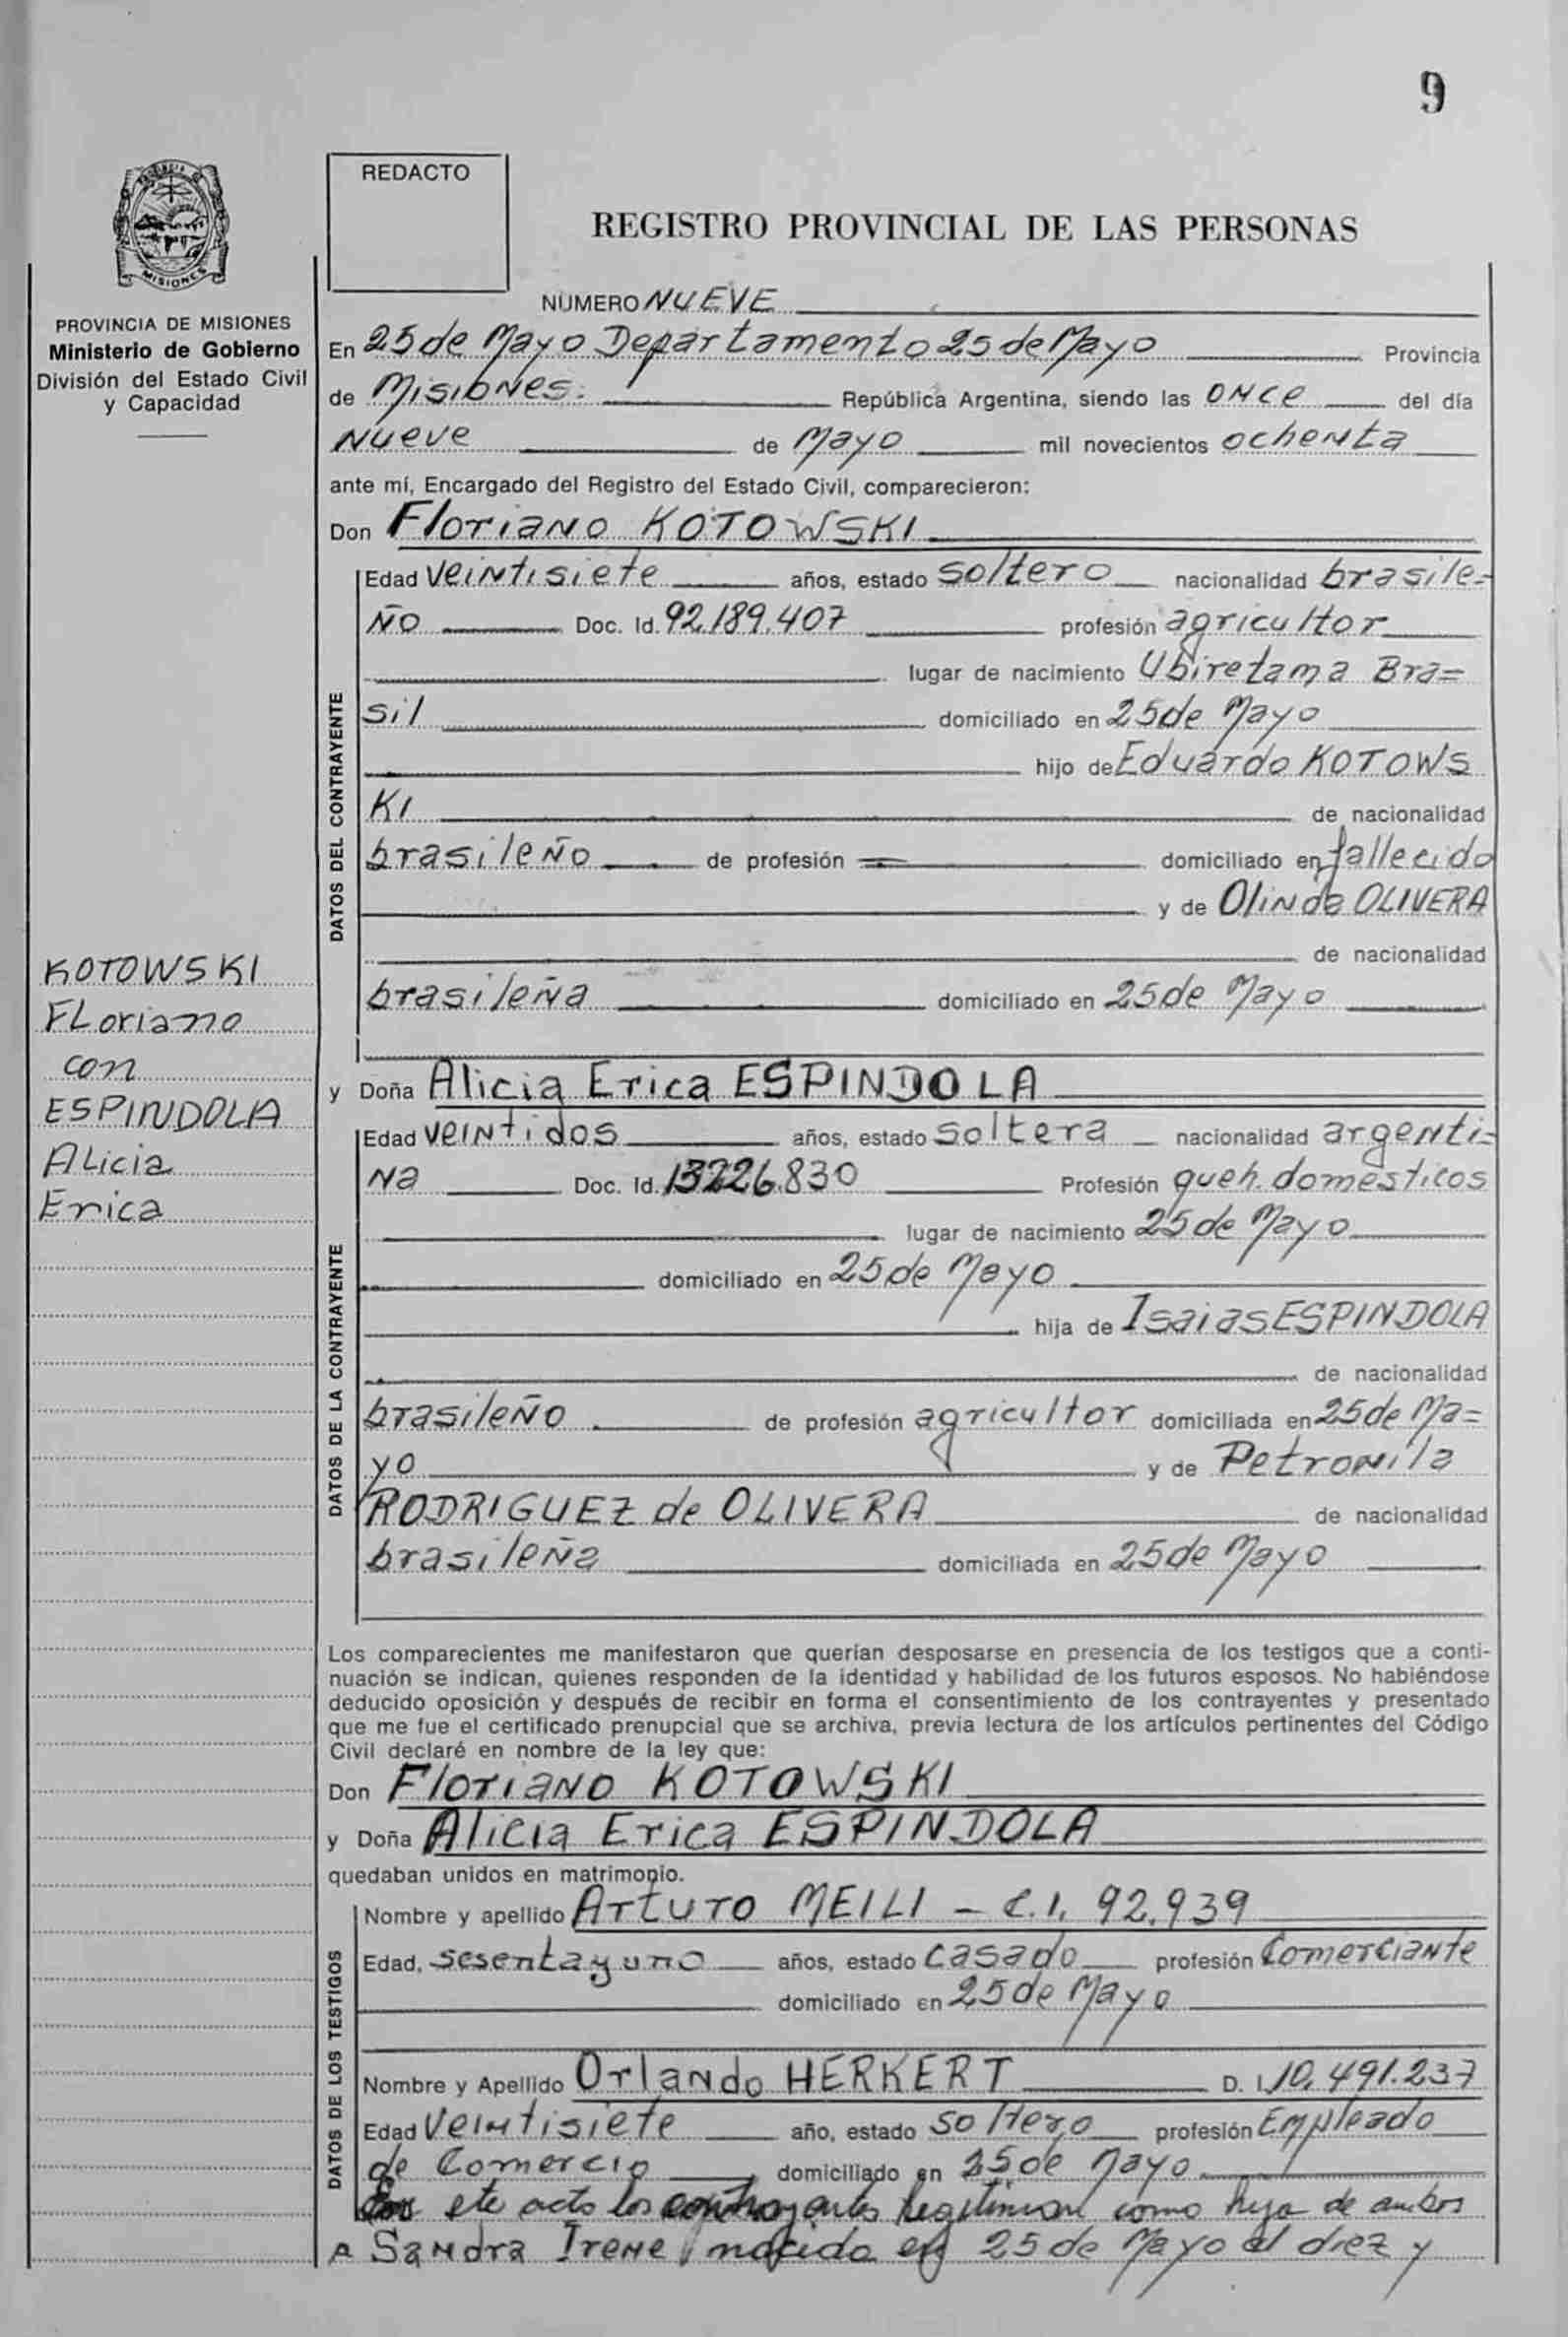 9
REDACTO
REGISTRO PROVINCIAL DE LAS PERSONAS
MISIONES
PROVINCIA DE MISIONES
Ministerio de Gobierno
División del Estado Civil
y Capacidad
NUMERO NUEVE
En 25 de Mayo Departamento 25 de Mayo Provincia
de Misiones. República Argentina, siendo las ONCe del día
Nueve de Mayo mil novecientos ochenta
ante mí, Encargado del Registro del Estado Civil, comparecieron:
Don Floriano KOTOWSKI
DATOS DEL CONTRAYENTE
Edad veintisiete años, estado soltero nacionalidad brasile=
ño Doc. Id. 92.189.407 profesión agricultor
lugar de nacimiento Ubiretama Bra=
sil domiciliado en 25 de Mayo
hijo de Eduardo KOTOWS
KI de nacionalidad
brasileño de profesión = domiciliado en fallecido
y de Olinda OLIVERA
de nacionalidad
brasileña domiciliado en 25 de Mayo
KOTOWSKI
FLoriano
con
ESPINDOLA
ALicia
Erica
y Doña Alicia Erica ESPINDOLA
DATOS DE LA CONTRAYENTE
Edad veintidos años, estado soltera nacionalidad argenti=
na Doc. Id. 13226.830 Profesión queh. domésticos
lugar de nacimiento 25 de Mayo
domiciliado en 25 de Mayo
hija de Isaias ESPINDOLA
de nacionalidad
brasileño de profesión agricultor domiciliada en 25 de Ma=
yo y de Petronila
RODRIGUEZ de OLIVERA de nacionalidad
brasileña domiciliada en 25 de Mayo
Los comparecientes me manifestaron que querían desposarse en presencia de los testigos que a conti-
nuación se indican, quienes responden de la identidad y habilidad de los futuros esposos. No habiéndose
deducido oposición y después de recibir en forma el consentimiento de los contrayentes y presentado
que me fue el certificado prenupcial que se archiva, previa lectura de los artículos pertinentes del Código
Civil declaré en nombre de la ley que:
Don Floriano KOTOWSKI
y Doña Alicia Erica ESPINDOLA
quedaban unidos en matrimonio.
DATOS DE LOS TESTIGOS
Nombre y apellido Arturo MEILI - C.I. 92.939
Edad, sesenta y uno años, estado casado profesión Comerciante
domiciliado en 25 de Mayo
Nombre y Apellido Orlando HERKERT D. I. 10.491.237
Edad veintisiete año, estado soltero profesión Empleado
de Comercio domiciliado en 25 de Mayo
En ete acto los contrayentes legitiman como hija de ambos
A Sandra Irene nacida en 25 de Mayo el diez y